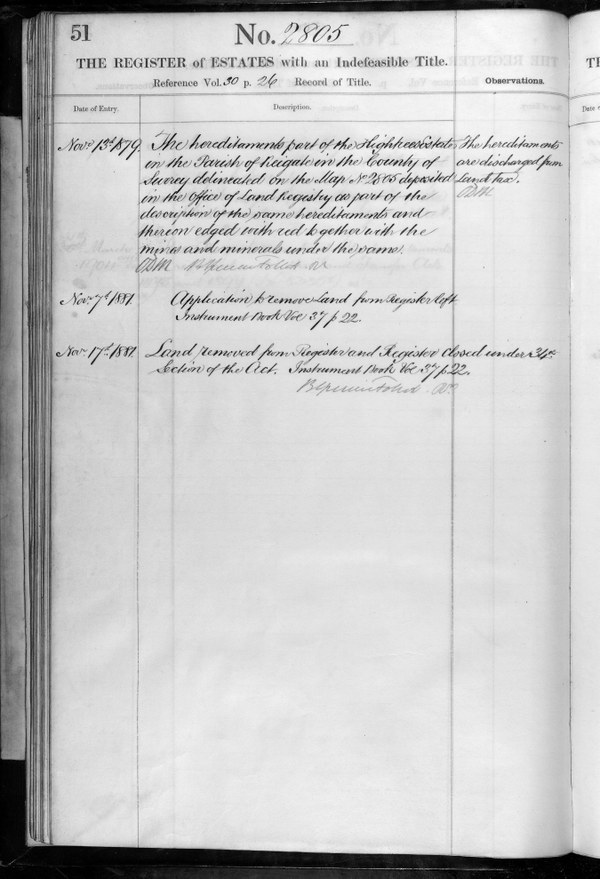 51
No. 2805
THE REGISTER of ESTATES with an Indefeasible Title.
Reference Vol. 30 p. 26 Record of Title.
Observations.
Date of Entry.
Description.
Novr 13th 1879
The hereditaments part of the Estate
in the Parish of Reigate in the County of
Surrey delineated on the Map No 2805 deposited
in the office of Land Registry as part of the
description of the same hereditaments and
thereon edged with red together with the
mines and minerals under the same.
The hereditaments
are discharged from
Land Tax.
Novr 7th 1881.
Application to remove Land from Register left
Instrument Book Vol 37 p 22.
Novr 17th 1881.
Land removed from Register and Register closed under 34th
Section of the Act. Instrument Book Vol 37 p 22.